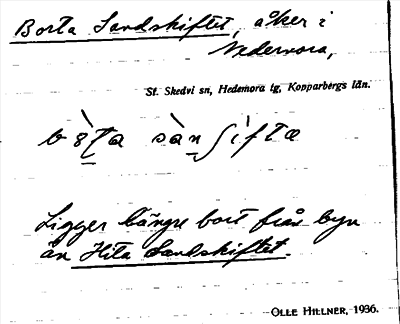 Borta Sandskiftet, åker i
Nedernora,
St. Skedvi sn, Hedemora tg, Kopparbergs län.
Ligger längre bort från byn
än Hita Sandskiftet.
OLLE HILLNER, 1936.